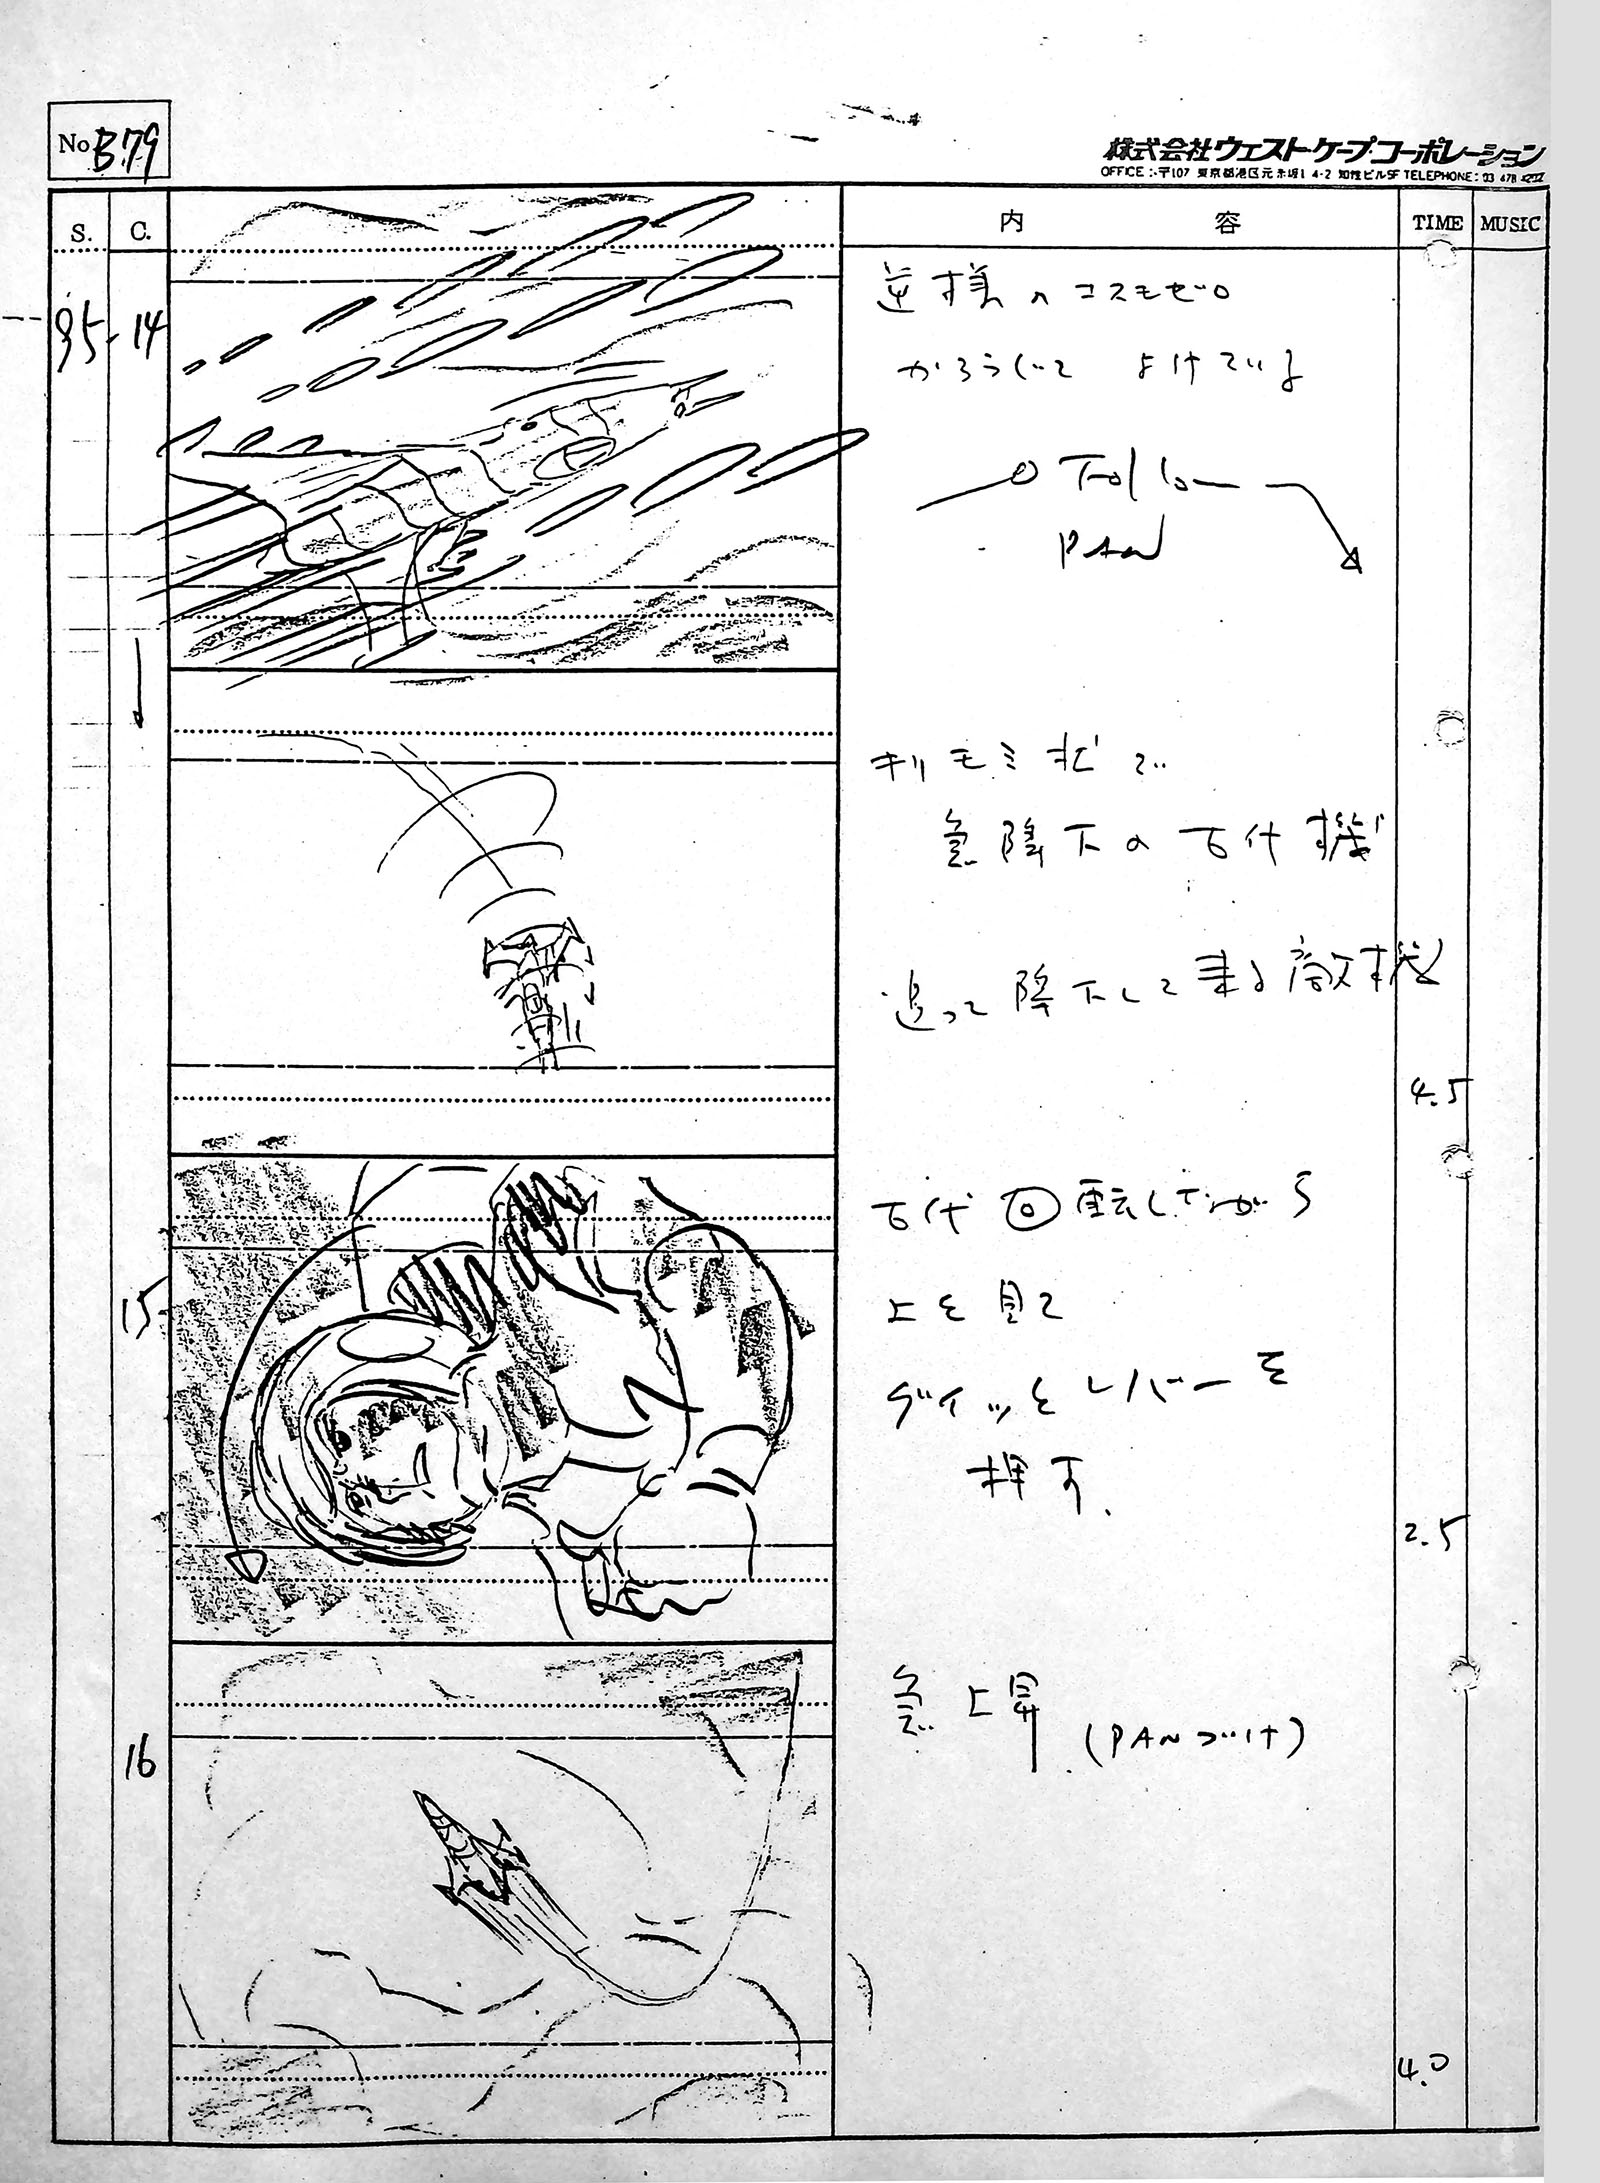 No B79
株式会社ウェスト・ケープ・コーポレーション
OFFICE:〒107 東京都港区元赤坂1 4-2 知性ビル5F TELEPHONE: 03 478
S. C. 内 容 TIME MUSIC
35 14
逆様のコスモゼロ
かろうじて よけている
Follow
PAN
キリモミ状で
急降下の古代機
追って降下して来る敵機
4.5
15
古代 回転しながら
上を見て
グイッとレバーを
押す.
2.5
16
急上昇 (PANづけ)
4.0